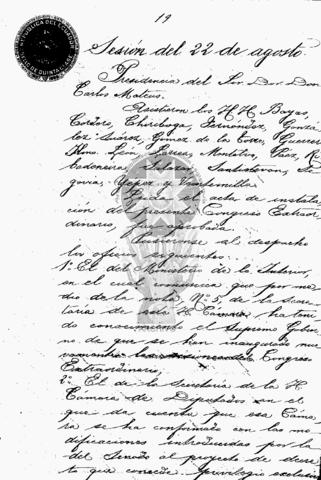 19
REPUBLICA DEL ECUADOR
Sesión del 22 de agosto.
Presidencia del Sor. Dor. Don
Carlos Mateus.
Asistieron los H.H. Borja,
Cordero, Chiriboga, Fernández, Gonzá-
lez Suárez, Gómez de la Torre, Guerrero
León, Larrea, Montalvo, Páez, R
Salazar, Santistevan, Se-
govia, Yépez y
Leida el acta de instala-
ción del presente Congreso Extraor-
dinario, fue aprobada.
Diéronse al despacho
los oficios siguientes:
1º El del Ministerio de lo Interior,
en el cual comunica que por me-
dio de la nota Nº 5, de la Secre-
taría de esta H. Cámara, ha teni-
do conocimiento el Supremo Gobier-
no de que se han inaugurado nue-
vamente las sesiones del Congreso
Extraordinario;
2º El de la Secretaría de la H.
Cámara de Diputados en el
que da cuenta que esa Cáma-
ra se ha conformado con las mo-
dificaciones introducidas por la
del Senado al proyecto de decre-
to que concede privilegio exclusivo